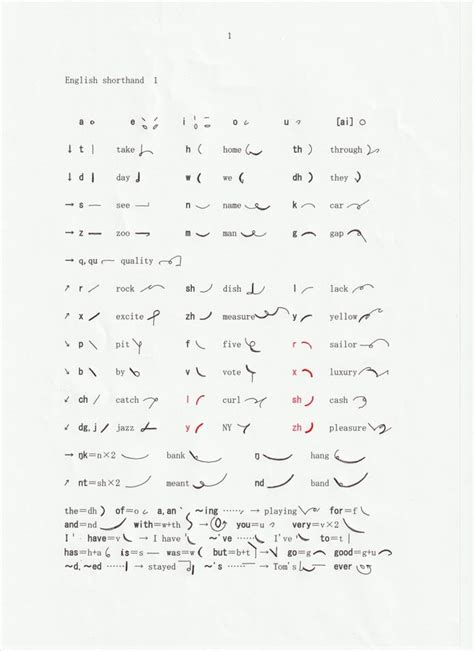 1
English shorthand 1
a e i o u [ai]
↓ t take h home th through
↓ d day w we dh they
→ s see n name k car
→ z zoo m man g gap
→ q, qu quality
↗ r rock sh dish l lack
↗ x excite zh measure y yellow
↘ p pit f five r sailor
↘ b by v vote x luxury
↙ ch catch l curl sh cash
↙ dg, j jazz y NY zh pleasure
→ ŋk=n×2 bank ŋ hang
↗ nt=sh×2 meant nd band
the=dh of=o a, an` ~ing ······ → playing for=f
and=nd with=w+th → you=u very=v×2
I ' have=v → I have ~'ve ······ I've to=t
has=h+a is=s was=w but=b+t → go=g good=g+u
~d, ~ed ······ → stayed ~'s ······ → Tom's ever